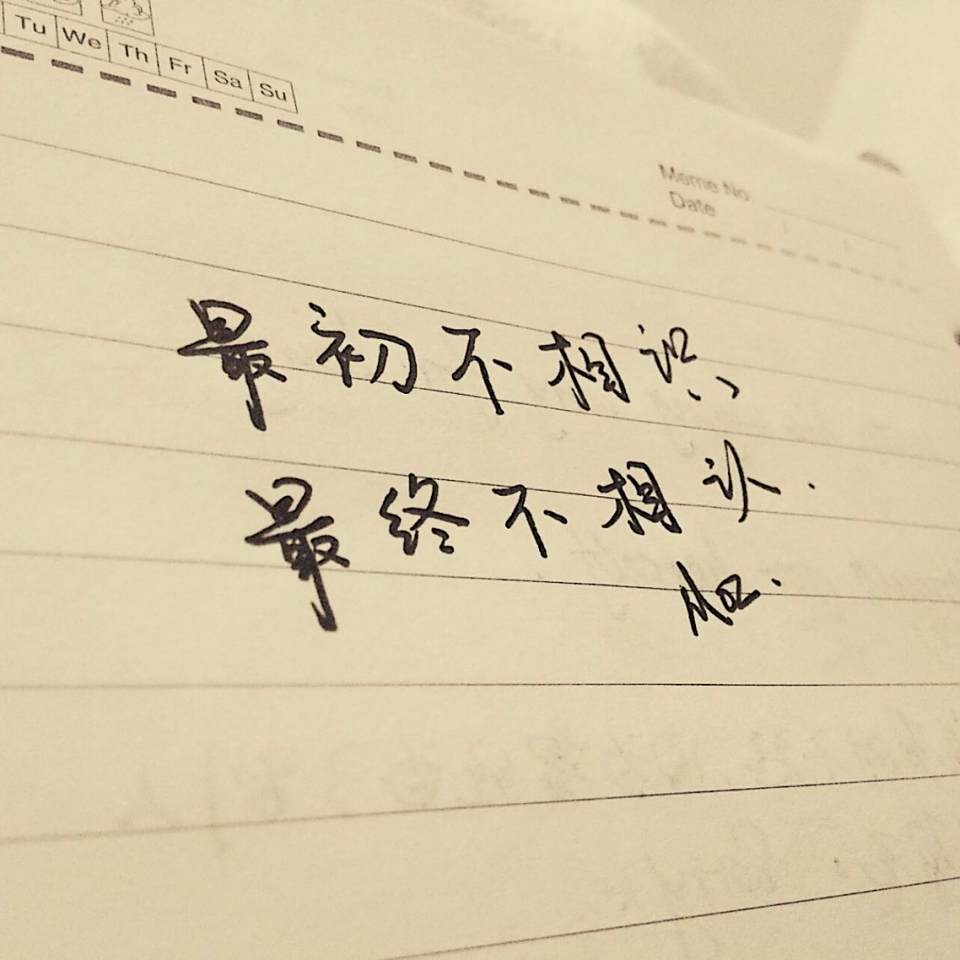 Tu We Th Fr Sa Su
Meme No
Date
最初不相识
最终不相认.